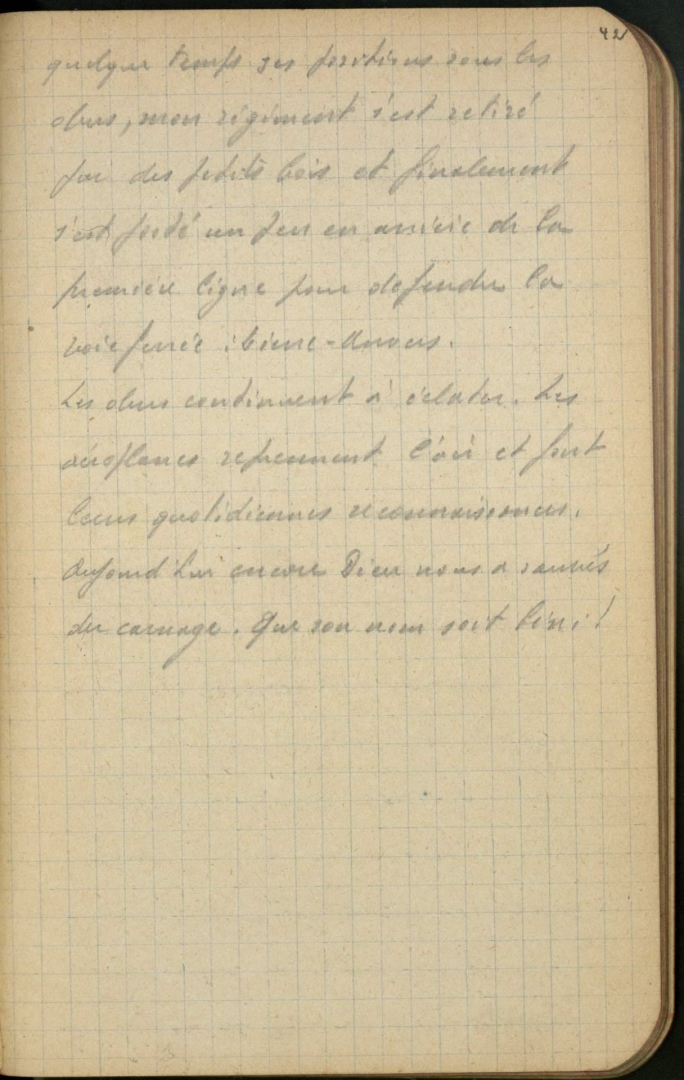 42
quelque temps ses positions sous les
obus, mon régiment s'est retiré
par des petits bois et finalement
s'est porté un peu en arrière de la
première ligne pour défendre la
voie ferrée : Lierre-Anvers.
Les obus continuent à éclater. Les
aéroplanes reprennent l'air et font
leurs quotidiennes reconnaissances.
Aujourd'hui encore Dieu nous a sauvés
du carnage. Que son nom soit béni !